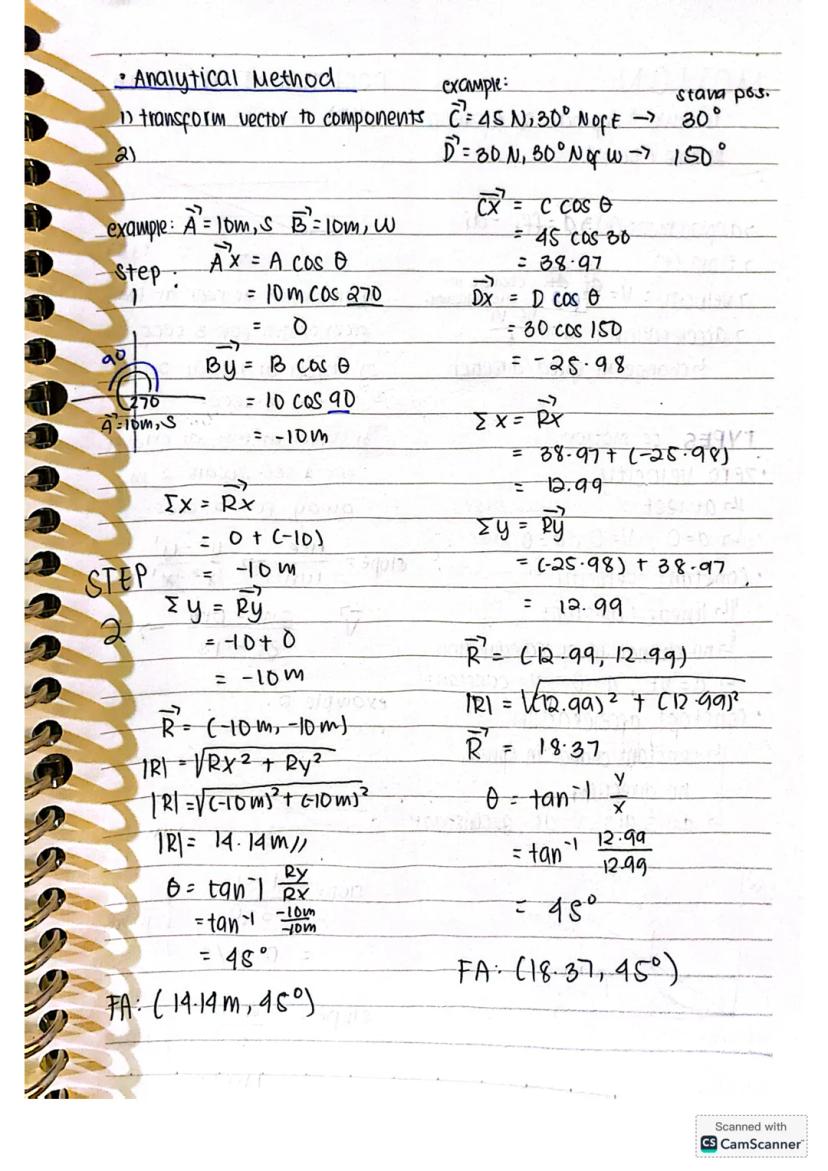 • Analytical Method
1) transform vector to components
2)
example: A = 10m, S B = 10m, W
Step:
1
Ax = A cos θ
= 10 m cos 270
= 0
90
270
A = 10m, S
By = B cos θ
= 10 cos 90
= -10m
Σx = Rx
= 0 + (-10)
= -10 m
STEP
2
Σy = Ry
= -10 + 0
= -10 m
R = (-10 m, -10 m)
|R| = √Rx² + Ry²
|R| = √(-10 m)² + (-10 m)²
|R| = 14.14 m //
θ = tan⁻¹ Ry/Rx
= tan⁻¹ -10m/-10m
= 45°
FA: (14.14 m, 45°)
example:
stand pos.
C = 45 N, 30° N of E → 30°
D = 30 N, 30° N of W → 150°
Cx = C cos θ
= 45 cos 30
= 38.97
Dx = D cos θ
= 30 cos 150
= -25.98
Σx = Rx
= 38.97 + (-25.98)
= 12.99
Σy = Ry
= (-25.98) + 38.97
= 12.99
R = (12.99, 12.99)
|R| = √(12.99)² + (12.99)²
R = 18.37
θ = tan⁻¹ y/x
= tan⁻¹ 12.99/12.99
= 45°
FA: (18.37, 45°)
Scanned with
CS CamScanner